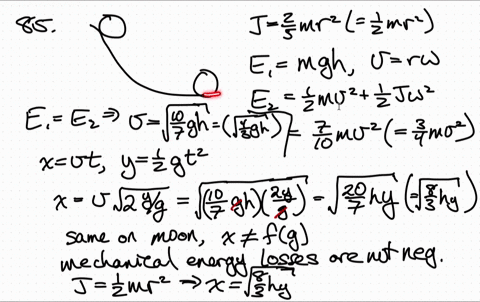 815.
J = 2/5 mr² (= 1/2 mr²)
E₁ = mgh, v = rω
E₂ = 1/2 mv² + 1/2 Jω²
= 7/10 mv² (= 3/4 mv²)
E₁ = E₂ ⇒ v = √(10/7 gh) = (√(4/3 gh))
x = vt, y = 1/2 gt²
x = v√(2 y/g) = √((10/7 gh)(2y/g)) = √(20/7 hy) (√(8/3 hy))
same on moon, x ≠ f(g)
mechanical energy losses are not neg.
J = 1/2 mr² → x = √(8/3 hy)